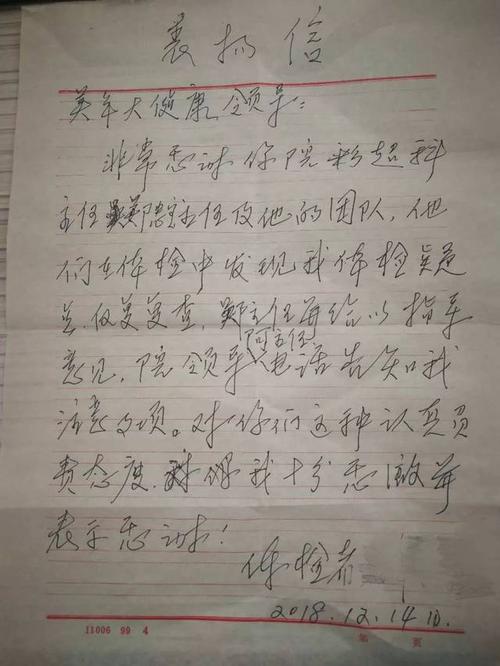 表扬信
美年大健康领导:
非常感谢你院彩超科
主任 主任及他的团队,他
们在体检中发现我体检异
反复复查,郑主任并给以指导
阿主任
意见,院领导电话告知我
注意事项。对你们这种认真负
责态度,我十分感激并
表示感谢!
体检者
2018.12.14日.
11006 99 4
第 页